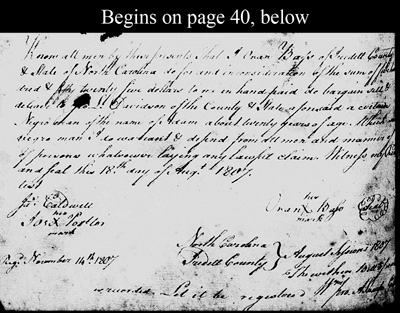 Begins on page 40, below
Know all men by these presents that I Evan Bass of Iredell County
& State of North Carolina do for and in consideration of the sum of
dred & fifty twenty five dollars to me in hand paid do bargain sell &
deliver to Davidson of the County & State aforesaid a certain
Negro man of the name of about twenty years of age. Which
negro man I do warrant & defend from all men and manner
of persons whatsoever laying any lawful claim. Witness my
and seal this 18th day of Augt 1807.
test
Caldwell
his her
Evan X Bass
mark mark
North Carolina August Sessions 1807
Iredell County The within Bill of
Regr. November 14th 1807
recorded Let it be registered